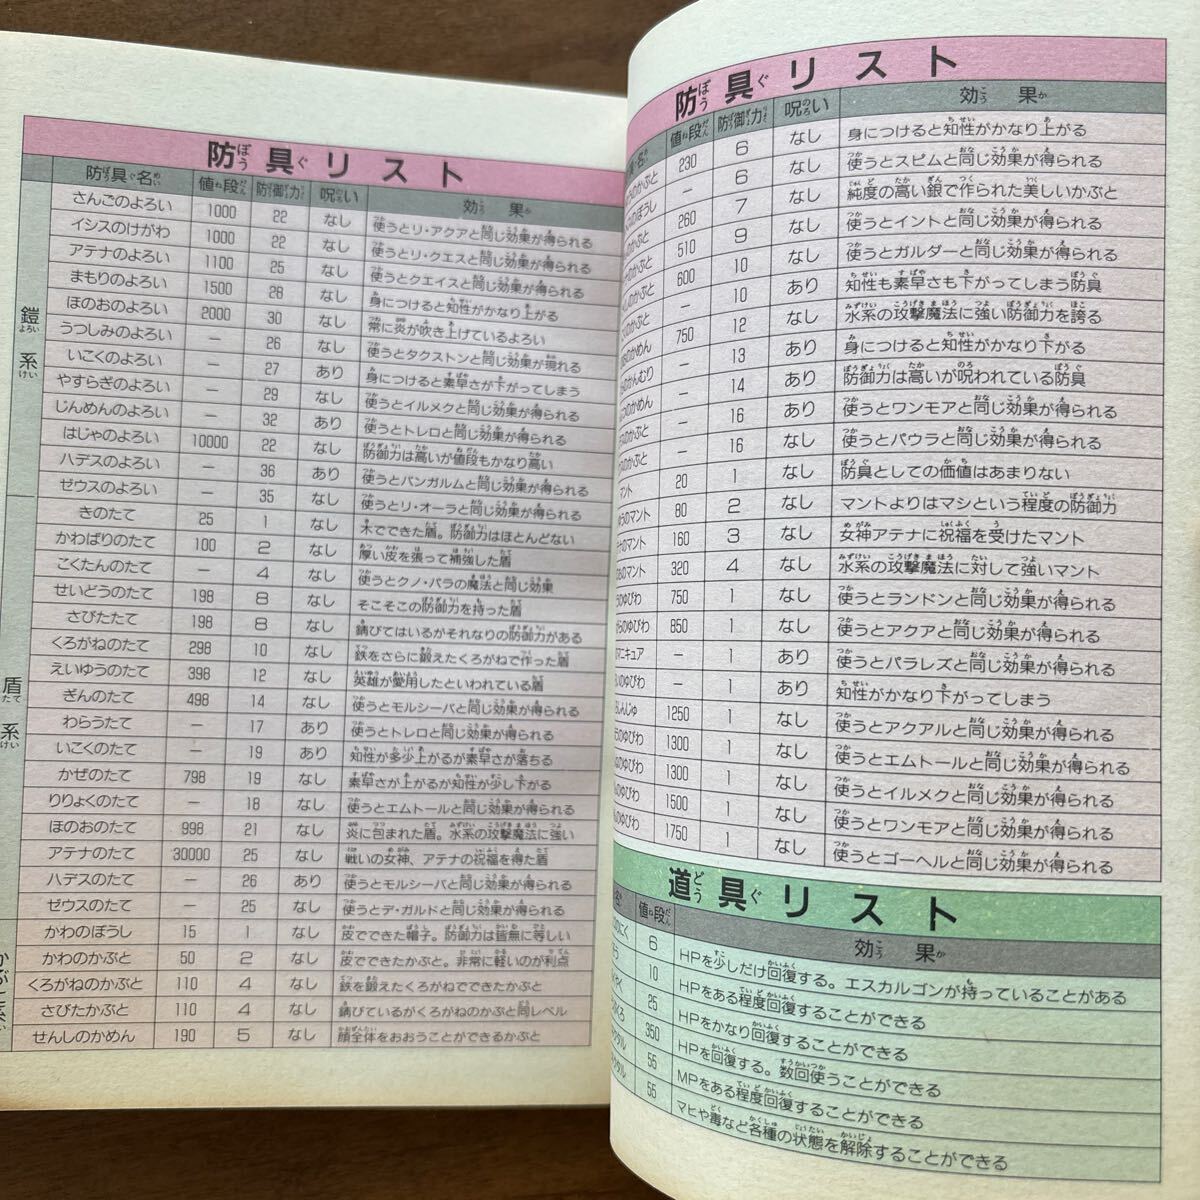 防具リスト
防具名 値段 防御力 呪い 効果
鎧系
さんごのよろい 1000 22 なし 使うとリ・アクアと同じ効果が得られる
イシスのけがわ 1000 22 なし 使うとリ・クエスと同じ効果が得られる
アテナのよろい 1100 25 なし 使うとクエイスと同じ効果が得られる
まもりのよろい 1500 28 なし 身につけると知性がかなり上がる
ほのおのよろい 2000 30 なし 常に炎が吹き上げているよろい
うつしみのよろい — 26 なし 使うとタクストンと同じ効果が現れる
いこくのよろい — 27 あり 身につけると素早さが下がってしまう
やすらぎのよろい — 29 なし 使うとイルメクと同じ効果が得られる
じんめんのよろい — 32 あり 使うとトレロと同じ効果が得られる
はじゃのよろい 10000 22 なし 防御力は高いが値段もかなり高い
ハデスのよろい — 36 あり 使うとバンガルムと同じ効果が得られる
ゼウスのよろい — 35 なし 使うとリ・オーラと同じ効果が得られる
盾系
きのたて 25 1 なし 木でできた盾。防御力はほとんどない
かわばりのたて 100 2 なし 厚い皮を張って補強した盾
こくたんのたて — 4 なし 使うとクノ・バラの魔法と同じ効果
せいどうのたて 198 8 なし そこそこの防御力を持った盾
さびたたて 198 8 なし 錆びてはいるがそれなりの防御力がある
くろがねのたて 298 10 なし 鉄をさらに鍛えたくろがねで作った盾
えいゆうのたて 398 12 なし 英雄が愛用したといわれている盾
ぎんのたて 498 14 なし 使うとモルシーバと同じ効果が得られる
わらうたて — 17 あり 使うとトレロと同じ効果が得られる
いこくのたて — 19 あり 知性が多少上がるが素早さが落ちる
かぜのたて 798 19 なし 素早さが上がるが知性が少し下がる
りりょくのたて — 18 なし 使うとエムトールと同じ効果が得られる
ほのおのたて 998 21 なし 炎に包まれた盾。水系の攻撃魔法に強い
アテナのたて 30000 25 なし 戦いの女神、アテナの祝福を得た盾
ハデスのたて — 26 あり 使うとモルシーバと同じ効果が得られる
ゼウスのたて — 25 なし 使うとデ・ガルドと同じ効果が得られる
かぶと系
かわのぼうし 15 1 なし 皮でできた帽子。防御力は皆無に等しい
かわのかぶと 50 2 なし 皮でできたかぶと。非常に軽いのが利点
くろがねのかぶと 110 4 なし 鉄を鍛えたくろがねでできたかぶと
さびたかぶと 110 4 なし 錆びているがくろがねのかぶと同レベル
せんしのかめん 190 5 なし 顔全体をおおうことができるかぶと
防具リスト
具名 値段 防御力 呪い 効果
のかぶと 230 6 なし 身につけると知性がかなり上がる
のぼうし — 6 なし 使うとスピムと同じ効果が得られる
のかぶと 260 7 なし 純度の高い銀で作られた美しいかぶと
のかぶと 510 9 なし 使うとイントと同じ効果が得られる
のかぶと 600 10 なし 使うとガルダーと同じ効果が得られる
のかぶと — 10 あり 知性も素早さも下がってしまう防具
のかぶと 750 12 なし 水系の攻撃魔法に強い防御力を誇る
のかめん — 13 あり 身につけると知性がかなり下がる
のかんむり — 14 あり 防御力は高いが呪われている防具
のかめん — 16 あり 使うとワンモアと同じ効果が得られる
のかぶと — 16 なし 使うとパウラと同じ効果が得られる
マント 20 1 なし 防具としての価値はあまりない
のマント 80 2 なし マントよりはマシという程度の防御力
のマント 160 3 なし 女神アテナに祝福を受けたマント
のマント 320 4 なし 水系の攻撃魔法に対して強いマント
のゆびわ 750 1 なし 使うとランドンと同じ効果が得られる
のゆびわ 850 1 なし 使うとアクアと同じ効果が得られる
マニキュア — 1 あり 使うとパラレズと同じ効果が得られる
のゆびわ — 1 あり 知性がかなり下がってしまう
しんじゅ 1250 1 なし 使うとアクアルと同じ効果が得られる
のゆびわ 1300 1 なし 使うとエムトールと同じ効果が得られる
のゆびわ 1300 1 なし 使うとイルメクと同じ効果が得られる
のゆびわ 1500 1 なし 使うとワンモアと同じ効果が得られる
のゆびわ 1750 1 なし 使うとゴーヘルと同じ効果が得られる
道具リスト
値段 効果
6 HPを少しだけ回復する。エスカルゴンが持っていることがある
10 HPをある程度回復することができる
25 HPをかなり回復することができる
350 HPを回復する。数回使うことができる
55 MPをある程度回復することができる
55 マヒや毒など各種の状態を解除することができる